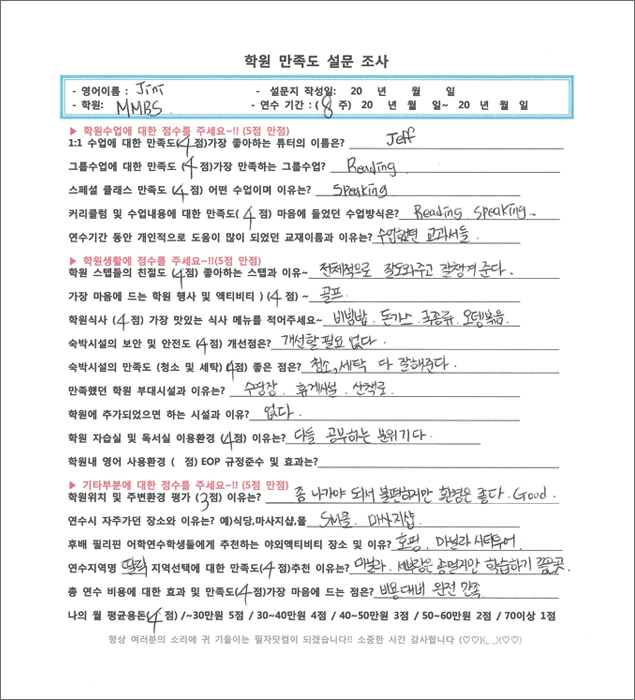 학원 만족도 설문 조사
- 영어이름 : Jini - 설문지 작성일: 20 년 월 일
- 학원: MMBS. - 연수 기간 : ( 8 주) 20 년 월 일~ 20 년 월 일
▶ 학원수업에 대한 점수를 주세요~!! (5점 만점)
1:1 수업에 대한 만족도(4점)가장 좋아하는 튜터의 이름은? Jeff
그룹수업에 대한 만족도 (4점)가장 만족하는 그룹수업? Reading.
스페셜 클래스 만족도 (4점) 어떤 수업이며 이유는? Speaking
커리큘럼 및 수업내용에 대한 만족도( 4 점) 마음에 들었던 수업방식은? Reading. Speaking.
연수기간 동안 개인적으로 도움이 많이 되었던 교재이름과 이유는? 수업했던 교과서들.
▶ 학원생활에 점수를 주세요~!!(5점 만점)
학원 스탭들의 친절도 (4점) 좋아하는 스탭과 이유~ 전체적으로 잘도와주고 잘챙겨준다.
가장 마음에 드는 학원 행사 및 액티비티 ) (4점) ~ 골프.
학원식사 (4점) 가장 맛있는 식사 메뉴를 적어주세요~ 비빔밥. 돈가스. 국종류. 오뎅볶음.
숙박시설의 보안 및 안전도 (4점) 개선점은? 개선할필요 없다.
숙박시설의 만족도 (청소 및 세탁) (4점) 좋은 점은? 청소, 세탁 다 잘해준다.
만족했던 학원 부대시설과 이유는? 수영장. 휴게시설. 산책로.
학원에 추가되었으면 하는 시설과 이유? 없다.
학원 자습실 및 독서실 이용환경 (4점) 이유는? 다들 공부하는 분위기다.
학원내 영어 사용환경 ( 점) EOP 규정준수 및 효과는?
▶ 기타부분에 대한 점수를 주세요~!! (5점 만점)
학원위치 및 주변환경 평가 (3점) 이유는? 좀 나가야 되서 불편하지만 환경은 좋다. Good.
연수시 자주가던 장소와 이유는? 예)식당,마사지샵,몰 SM몰. 마사지샵.
후배 필리핀 어학연수학생들에게 추천하는 야외액티비티 장소 및 이유? 호핑. 마닐라 시티투어.
연수지역명 딸락 지역선택에 대한 만족도(4점)추천 이유는? 마닐라. 세부같은 곳은멀지만 학습하기 좋은곳.
총 연수 비용에 대한 효과 및 만족도(4점)가장 마음에 드는 점은? 비용대비 완전 만족.
나의 월 평균용돈(4점) /~30만원 5점 / 30~40만원 4점 / 40~50만원 3점 / 50~60만원 2점 / 70이상 1점
항상 여러분의 소리에 귀 기울이는 필자닷컴이 되겠습니다!! 소중한 시간 감사합니다 (♡♡)(_ _)(♡♡)